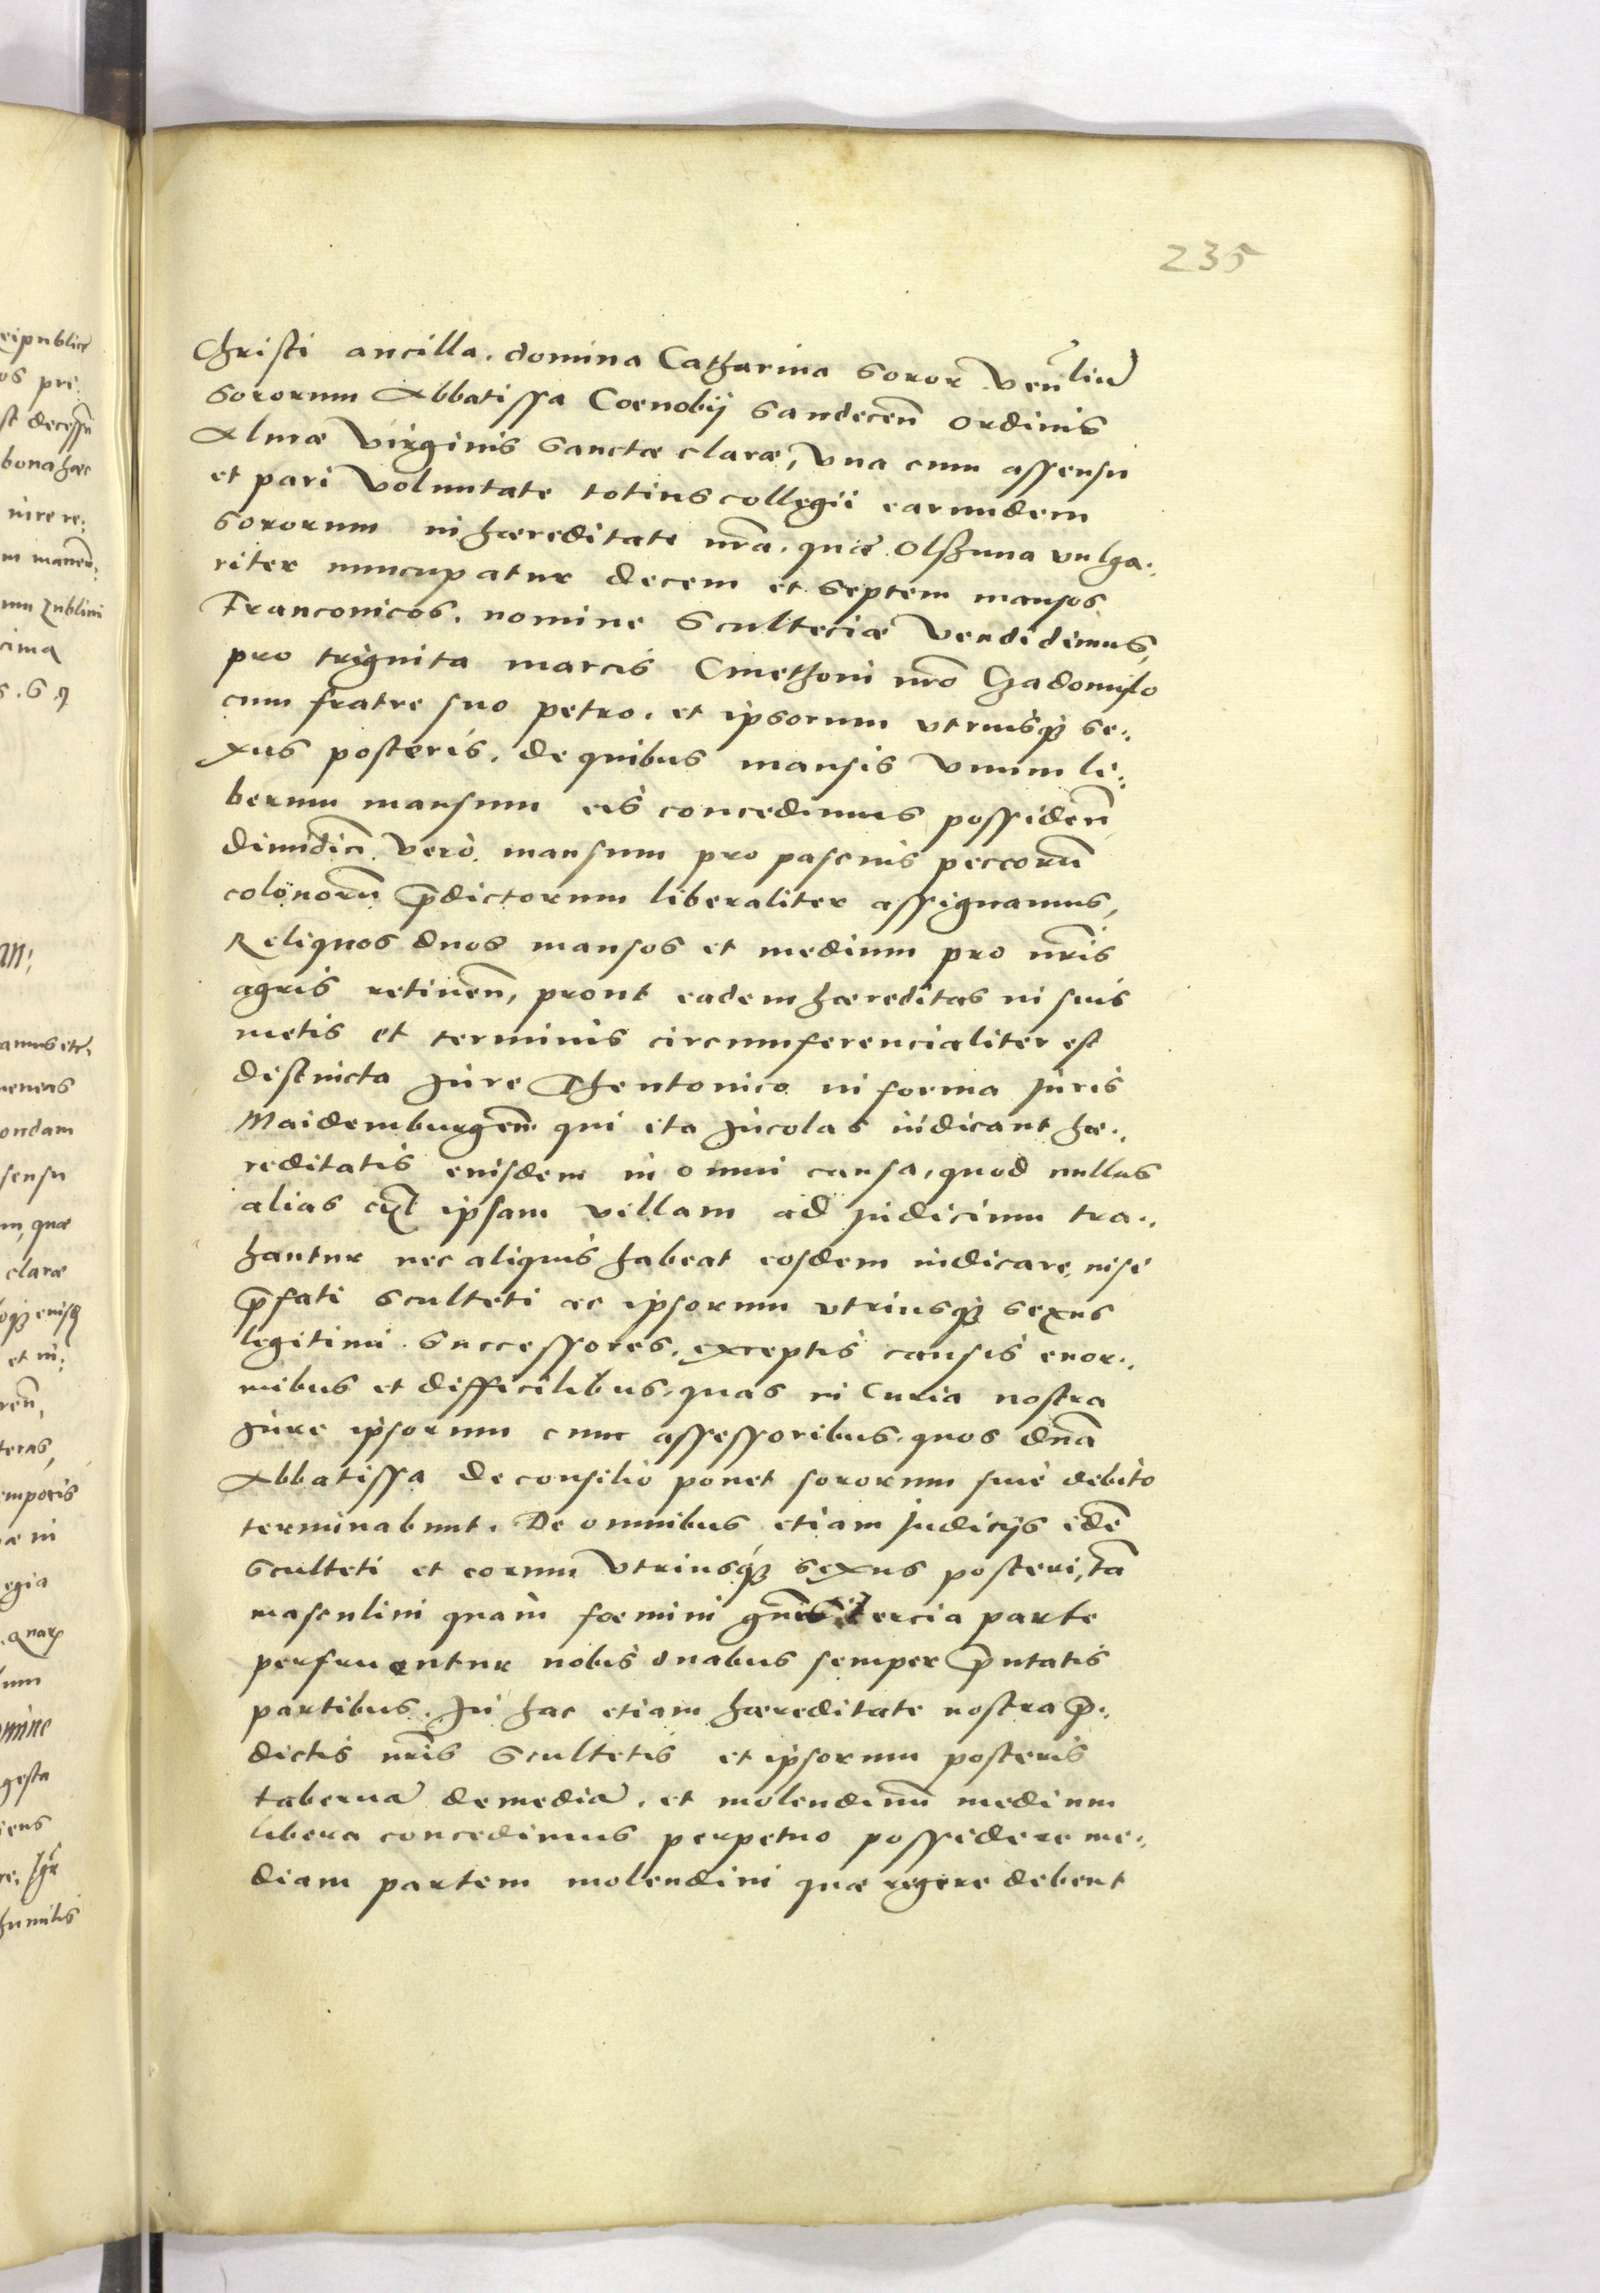 235
Christi ancilla. domina Catharina Soror Ven̄liū
Sororum Abbatissa Coenobij Sandeceñ Ordinis
Almæ Virginis Sanctæ claræ, Vna cum assensu
et pari Voluntate totius collegii earundem
Sororum in hæreditate nr̄a. quæ Olszuna vulga.,
riter nuncupatur decem et septem mansos
Franconicos. nomine Scultetiæ Vendidimus,
pro triginta marcis Cmethoni nr̄o Gadomilo
cum fratre suo petro. et ipsorum vtriusq; se.,
xus posteris. de quibus mansis Vnum li.,
berum mansum eis concedimus possideñ
dimidiū vero mansum pro pascuis peccorū
colonorū p̄dictorum liberaliter assignamus,
Reliquos duos mansos et medium pro nr̄is
agris retineñ, prout eadem hæreditas in suis
metis et terminis circumferencialiter est
distincta Jure Theutonico in forma Juris
Maidemburgeñ qui ita Jncolas iudicant hæ.,
reditatis eiusdem in omni causa, quod nullus
alias ext̄ ipsam villam ad Judicium tra.,
hantur nec aliquis habeat eosdem iudicare, nisi
p̄fati Sculteti ac ipsorum vtriusq; sexus
legitimi Successores. exceptis causis enor.,
mibus et difficilibus. quas in Curia nostra
Jure ipsorum cum assessoribus. quos dn̄a
Abbatissa de consilio ponet sororum sine debito
terminabunt. De omnibus etiam Judicijs ijdē
Sculteti et eorum Vtriusq; sexus posteri, tā
masculini quam foemini gn̄is tercia parte
perfruentur nobis duabus semper p̄ntatis
partibus. Jn hac etiam hæreditate nostra p̄.,
dictis nr̄is Scultetis et ipsorum posteris
tabernā demediā. et molendinū medium
libera concedimus perpetuo possidere me.,
diam partem molendini quæ regere debent